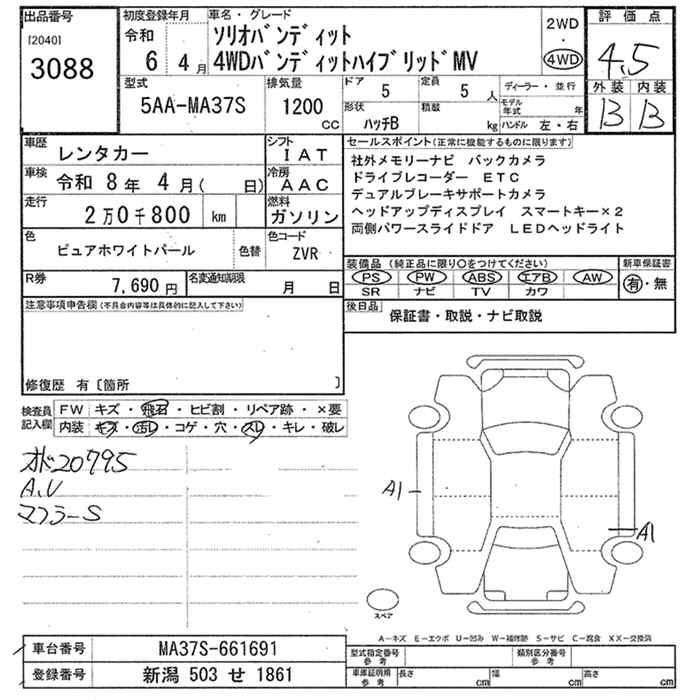 出品番号
[2040]
3088
初度登録年月
令和
6 4 月
車名・グレード
ソリオバンディット
4WDバンディットハイブリッドMV
2WD
・
4WD
評価点
4.5
外装 内装
B B
型式
5AA-MA37S
排気量
1200
cc
ドア
5
定員
5 人
形状
ハッチB
積載
kg
ディーラー・並行
モデル年式 年
ハンドル 左・右
車歴
レンタカー
シフト
IAT
車検
令和 8年 4月( 日)
冷房
AAC
走行
2万0千800 km
燃料
ガソリン
色
ピュアホワイトパール
色替
色コード
ZVR
R券
7,690 円
名変通知期限
月 日
セールスポイント(正常に機能するものに限ります)
社外メモリーナビ バックカメラ
ドライブレコーダー ETC
デュアルブレーキサポートカメラ
ヘッドアップディスプレイ スマートキー×2
両側パワースライドドア LEDヘッドライト
装備品(純正品に限り○をつけてください)
PS PW ABS エアB AW
SR ナビ TV カワ
新車保証書
有・無
後日品
保証書・取説・ナビ取説
注意事項申告欄(不具合内容等は具体的に記入して下さい)
修復歴 有〔箇所 〕
検査員記入欄
FW キズ・飛石・ヒビ割・リペア跡・×要
内装 キズ・汚れ・コゲ・穴・スレ・キレ・破レ
オド20795
A.V
マフラーS
A1
A1
スペア
A-キズ E-エクボ U-凹み W-補修跡 S-サビ C-腐食 XX-交換済
車台番号 MA37S-661691
登録番号 新潟 503 せ 1861
型式指定番号
参考
類別区分番号
参考
車庫証明用
参考
長さ cm 幅 cm 高さ cm